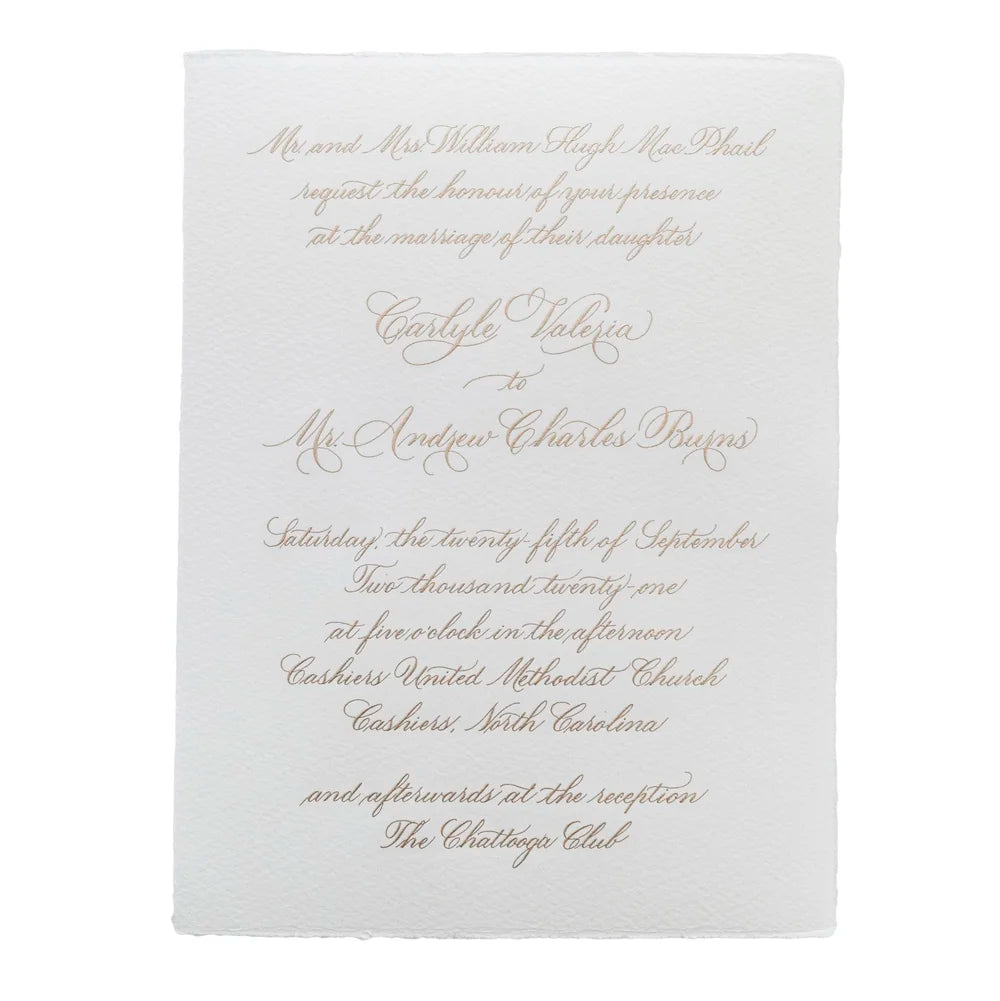 Mr. and Mrs. William Hugh MacPhail
request the honour of your presence
at the marriage of their daughter
Carlyle Valeria
to
Mr. Andrew Charles Burns
Saturday, the twenty-fifth of September
Two thousand twenty-one
at five o'clock in the afternoon
Cashiers United Methodist Church
Cashiers, North Carolina
and afterwards at the reception
The Chattooga Club